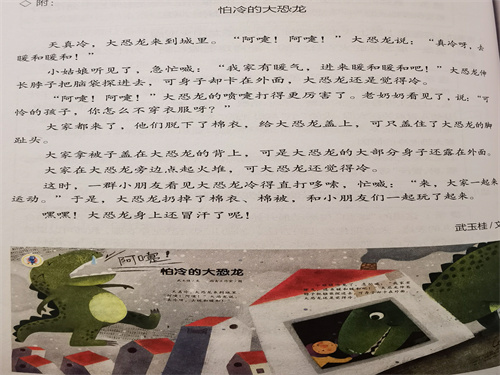 ◇ 附：
怕冷的大恐龙
天真冷，大恐龙来到城里。“阿嚏！阿嚏！”大恐龙说：“真冷呀，去
暖和暖和！”
小姑娘听见了，急忙喊：“我家有暖气，进来暖和暖和吧！”大恐龙伸
长脖子把脑袋探进去，可身子却卡在外面，大恐龙还是觉得冷。
“阿嚏！阿嚏！”大恐龙的喷嚏打得更厉害了。老奶奶看见了，说：“可
怜的孩子，你怎么不穿衣服呀？”
大家都来了，他们脱下了棉衣，给大恐龙盖上，可只盖住了大恐龙的脚
趾头。
大家拿被子盖在大恐龙的背上，可是大恐龙的大部分身子还露在外面。
大家在大恐龙旁边点起火堆，可大恐龙还觉得冷。
这时，一群小朋友看见大恐龙冷得直打哆嗦，忙喊：“来，大家一起来
运动。”于是，大恐龙扔掉了棉衣、棉被，和小朋友们一起玩了起来。
嘿嘿！大恐龙身上还冒汗了呢！
武玉桂/文
阿嚏！
怕冷的大恐龙